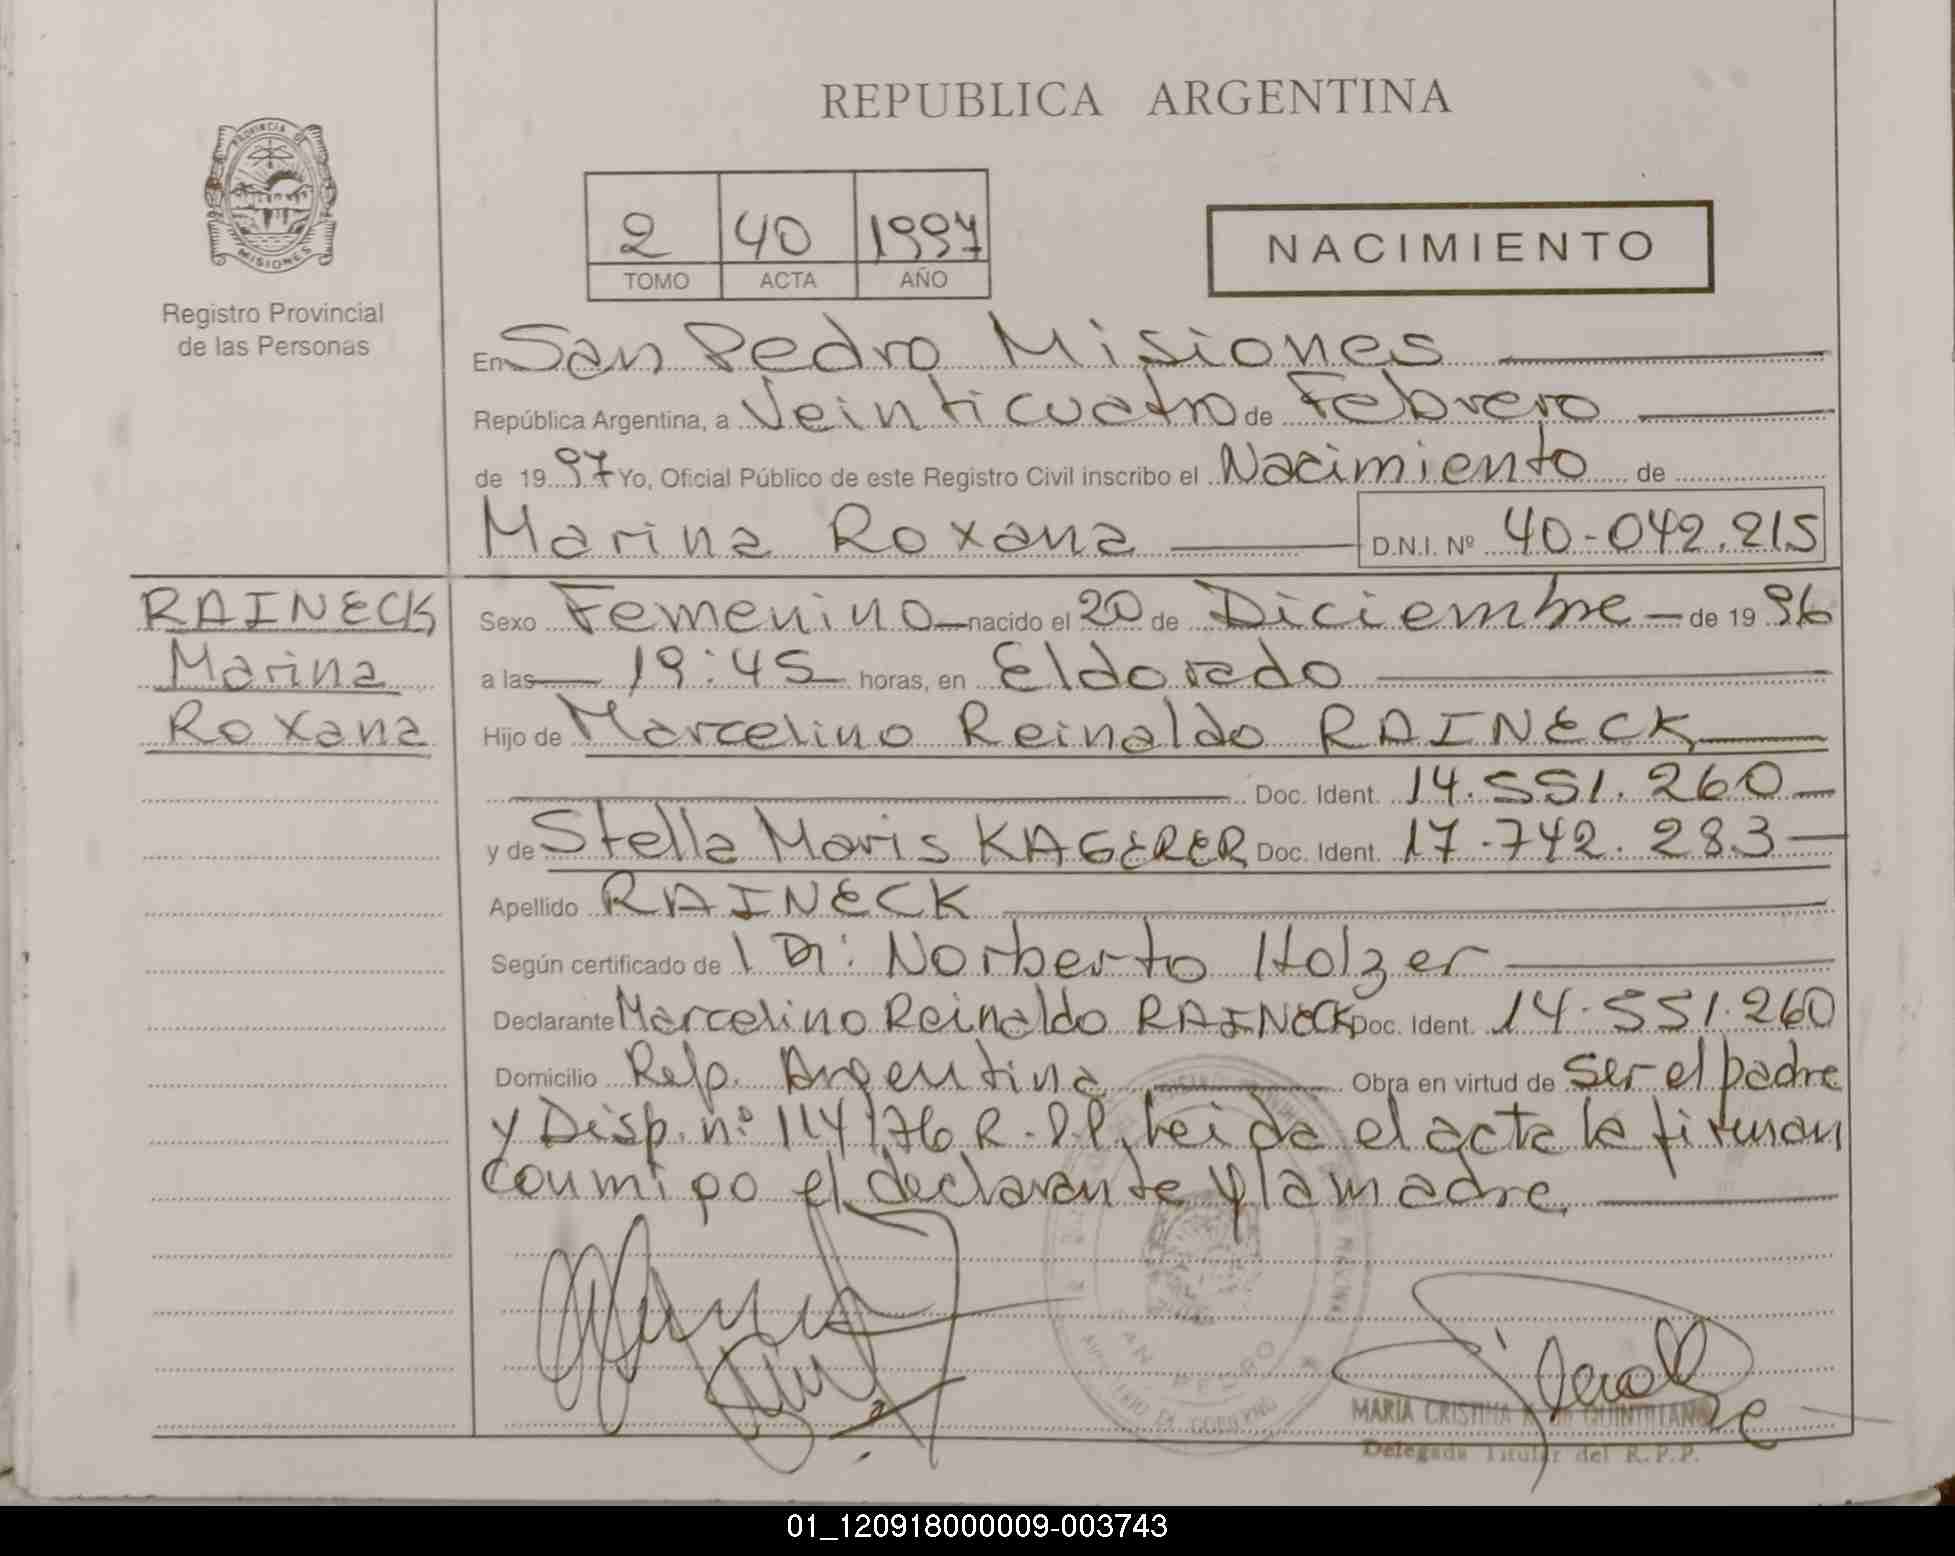 REPUBLICA ARGENTINA
PROVINCIA DE
MISIONES
Registro Provincial
de las Personas
2 40 1997
TOMO ACTA AÑO
NACIMIENTO
En San Pedro Misiones
República Argentina, a Veinticuatro de Febrero
de 19 97 Yo, Oficial Público de este Registro Civil inscribo el Nacimiento de
Marina Roxana D.N.I. Nº 40-042.215
RAINECK
Marina
Roxana
Sexo Femenino nacido el 20 de Diciembre de 19 96
a las 19:45 horas, en Eldorado
Hijo de Marcelino Reinaldo RAINECK
Doc. Ident. 14.551.260
y de Stella Maris KAGERER Doc. Ident. 17.742.283
Apellido RAINECK
Según certificado de 1 Dr: Norberto Holzer
Declarante Marcelino Reinaldo RAINECK Doc. Ident. 14.551.260
Domicilio Rep. Argentina Obra en virtud de ser el padre
y Disp. nº 114/76 R.P.P. Leida el acta la firman
conmigo el declarante y la madre
MARIA CRISTINA K. de QUINTILIAN
Delegada Titular del R.P.P.
01_120918000009-003743